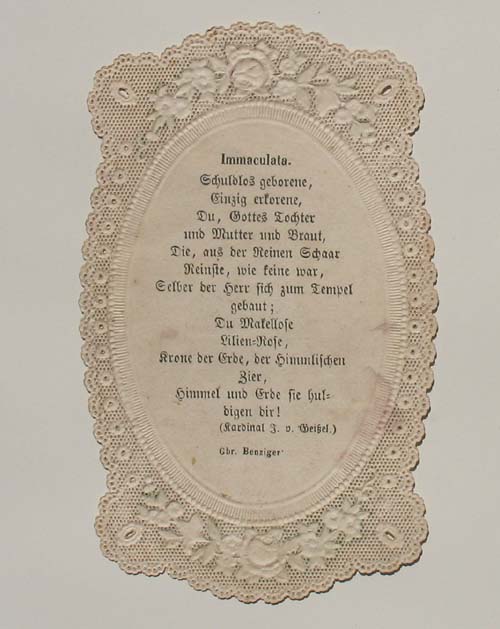 Immaculata.
Schuldlos geborene,
Einzig erkorene,
Du, Gottes Tochter
und Mutter und Braut,
Die, aus der Reinen Schaar
Reinste, wie keine war,
Selber der Herr sich zum Tempel
gebaut;
Du Makellose
Lilien-Rose,
Krone der Erde, der Himmlischen
Zier,
Himmel und Erde sie hul-
digen dir!
(Kardinal J. v. Geißel.)
Gbr. Benziger